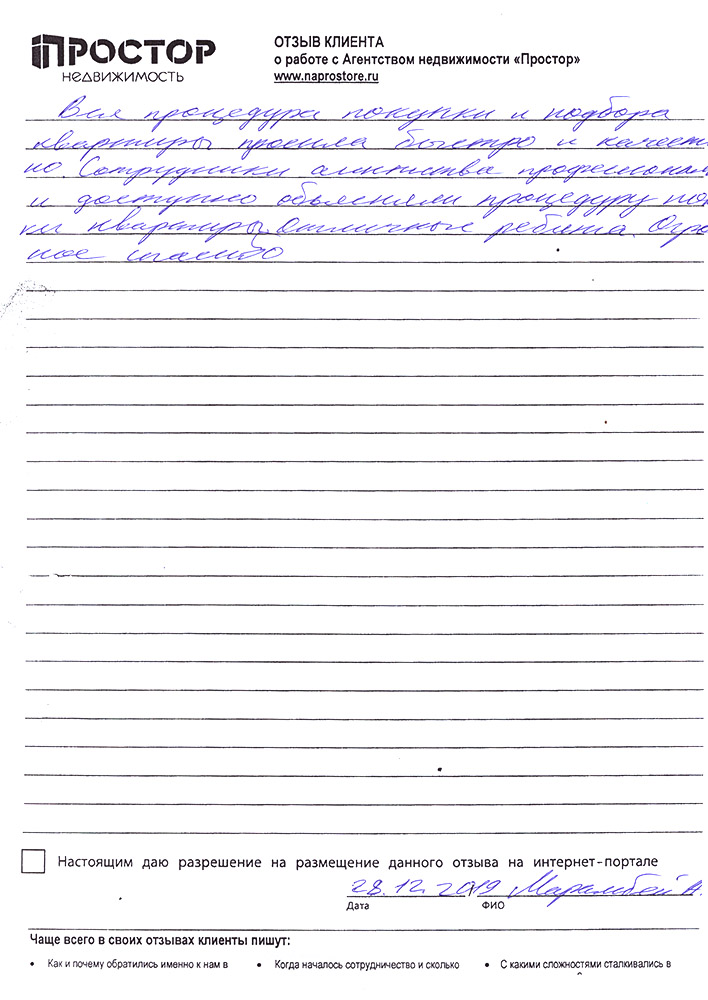 ПРОСТОР
НЕДВИЖИМОСТЬ
ОТЗЫВ КЛИЕНТА
о работе с Агентством недвижимости «Простор»
www.naprostore.ru
Вся процедура покупки и подбора
квартиры прошла быстро и качеств
но. Сотрудники агентства профессионал
и доступно объясняли процедуру пок
ки квартиры. Отличные ребята. Огро
ное спасибо
Настоящим даю разрешение на размещение данного отзыва на интернет-портале
28.12.2019
Дата
ФИО
Чаще всего в своих отзывах клиенты пишут:
• Как и почему обратились именно к нам в
• Когда началось сотрудничество и сколько
• С какими сложностями сталкивались в